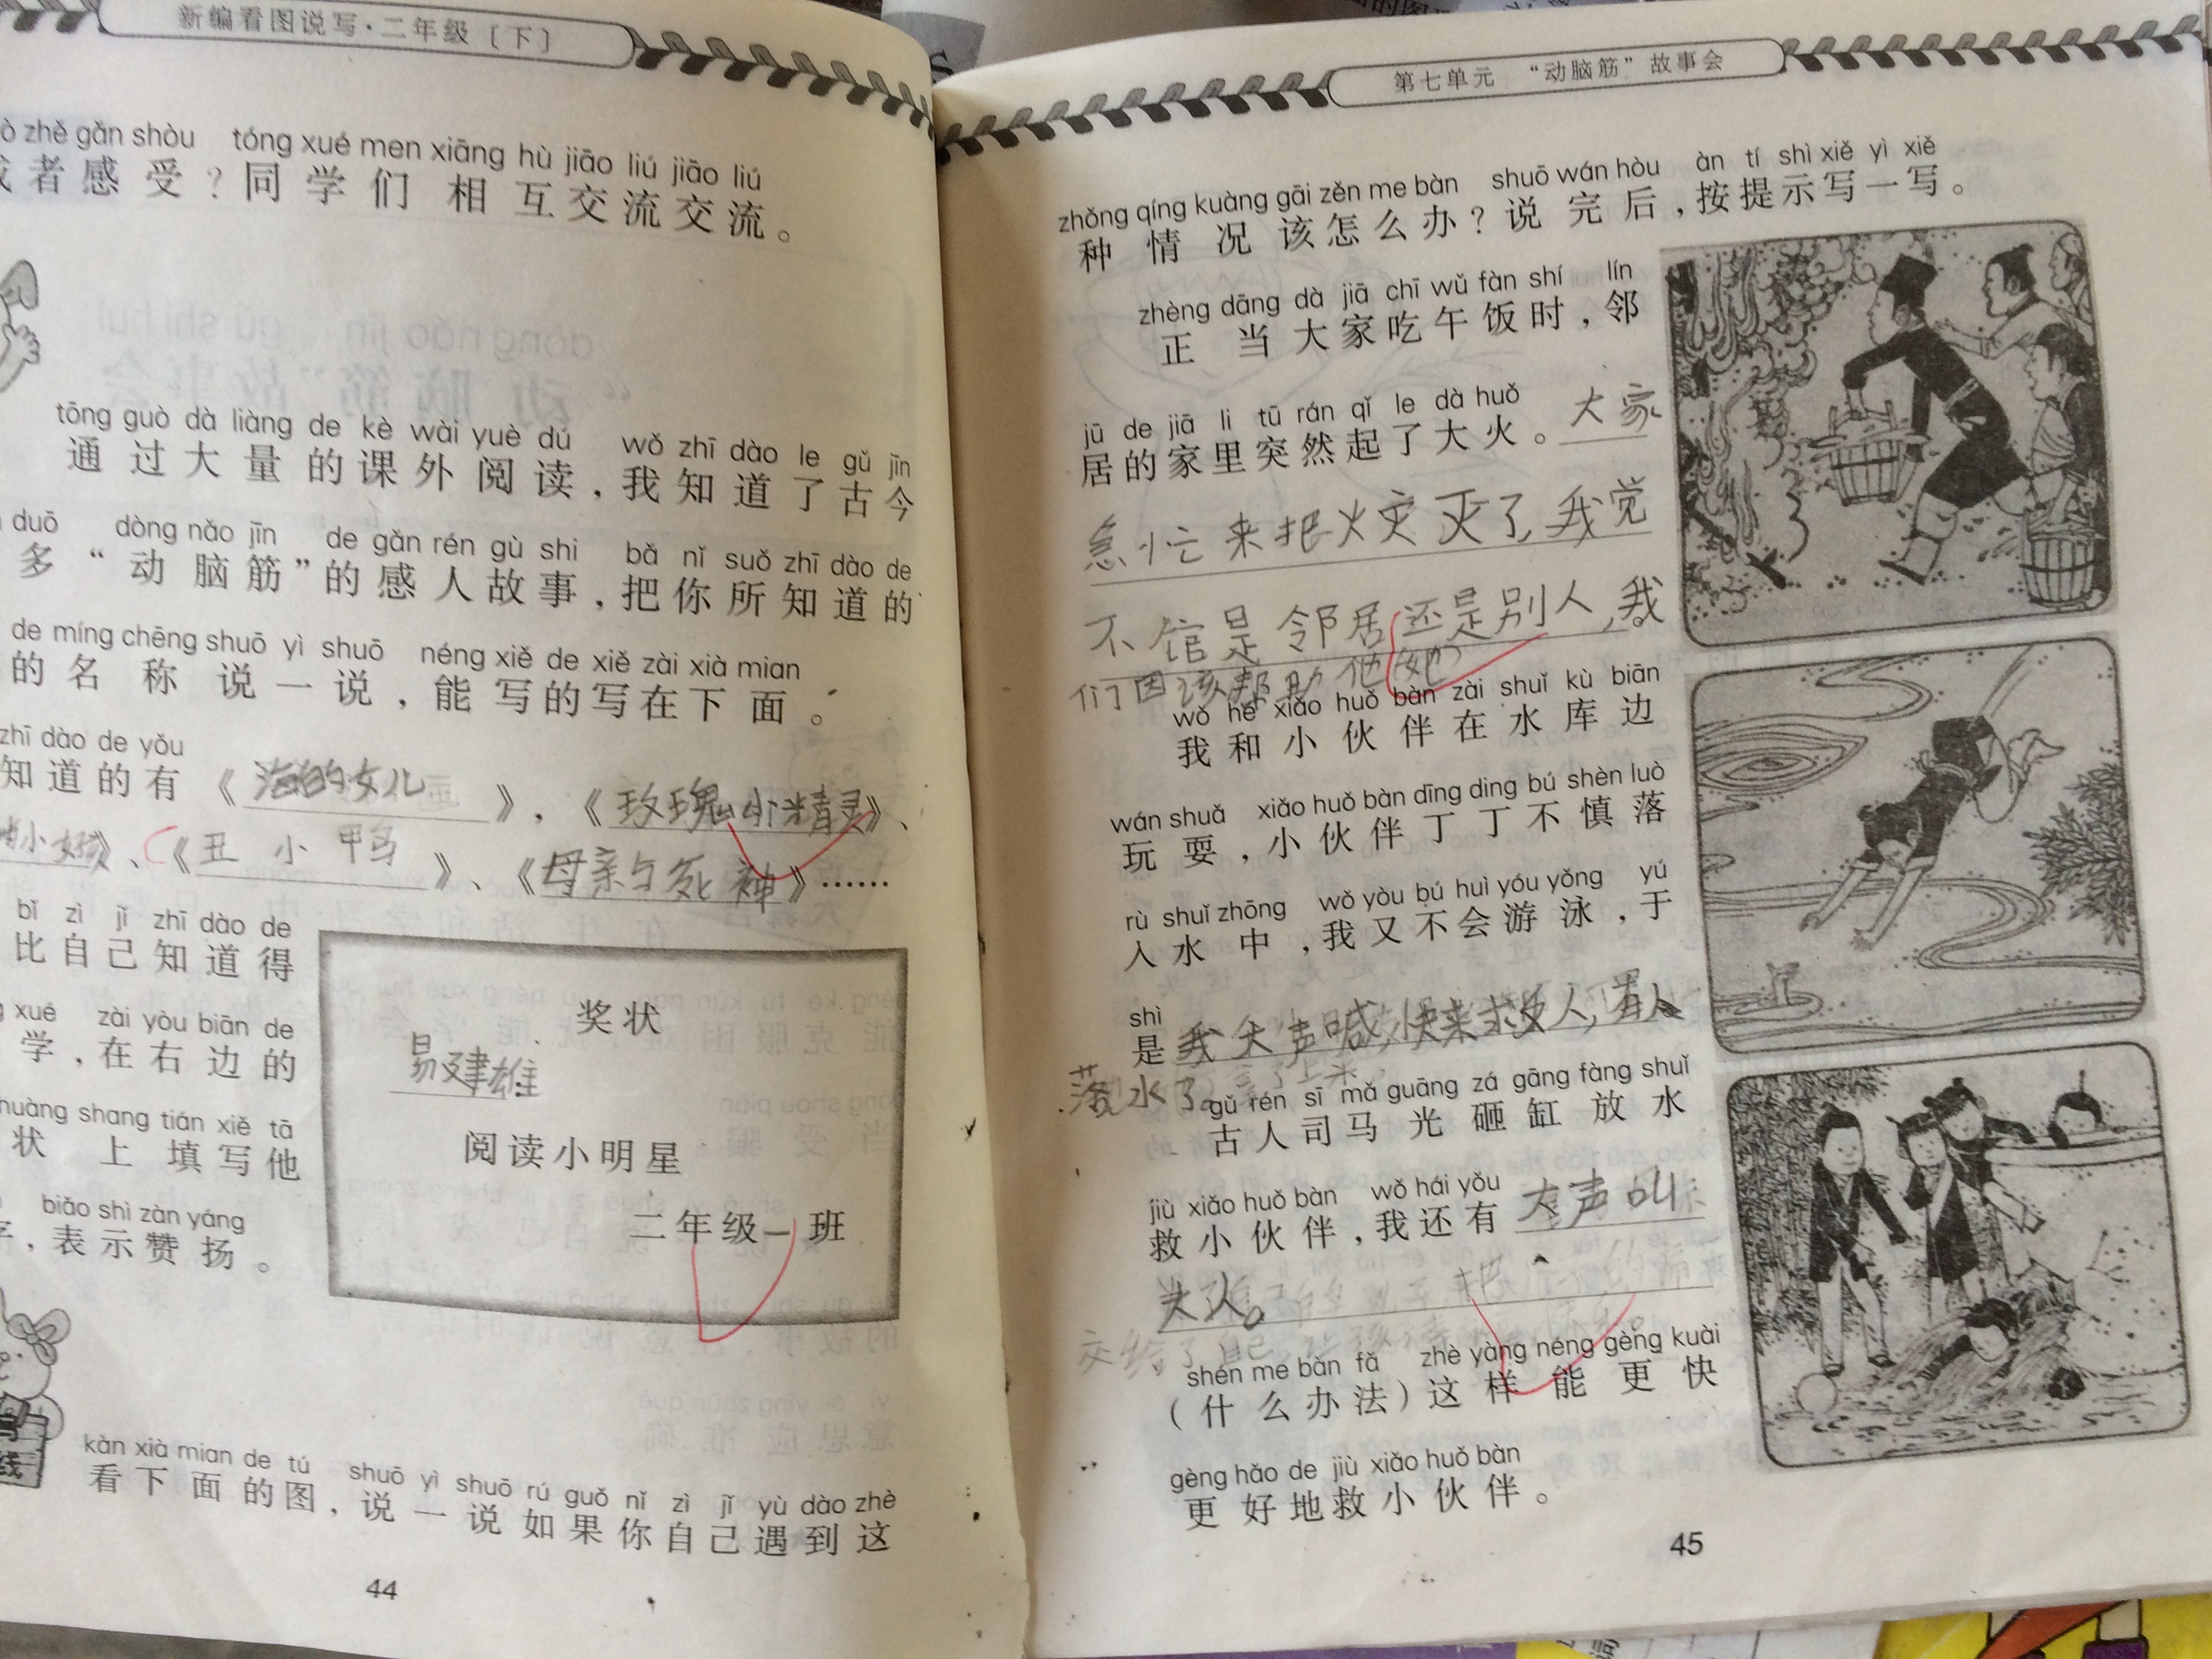 新编看图说写·二年级〔下〕
zhě gǎn shòu tóng xué men xiāng hù jiāo liú jiāo liú
者感受？同学们相互交流交流。
tōng guò dà liàng de kè wài yuè dú wǒ zhī dào le gǔ jīn
通过大量的课外阅读，我知道了古今
duō dòng nǎo jīn de gǎn rén gù shi bǎ nǐ suǒ zhī dào de
多“动脑筋”的感人故事，把你所知道的
de míng chēng shuō yì shuō néng xiě de xiě zài xià mian
的名称说一说，能写的写在下面。
zhī dào de yǒu
知道的有《海的女儿》，《玫瑰小精灵》、
小女孩》、《丑小鸭》、《母亲与死神》……
bǐ zì jǐ zhī dào de
比自己知道得
xué zài yòu biān de
学，在右边的
shang tián xiě tā
状上填写他
biǎo shì zàn yáng
，表示赞扬。
奖状
易建雄
阅读小明星
二年级一班
kàn xià mian de tú shuō yì shuō rú guǒ nǐ zì jǐ yù dào zhè
看下面的图，说一说如果你自己遇到这
44
第七单元 “动脑筋”故事会
zhǒng qíng kuàng gāi zěn me bàn shuō wán hòu àn tí shì xiě yì xiě
种情况该怎么办？说完后，按提示写一写。
zhèng dāng dà jiā chī wǔ fàn shí lín
正当大家吃午饭时，邻
jū de jiā li tū rán qǐ le dà huǒ
居的家里突然起了大火。大家
急忙来把火灾灭了，我觉
不馆是邻居还是别人，我
们因该帮助他(她)
wǒ hé xiǎo huǒ bàn zài shuǐ kù biān
我和小伙伴在水库边
wán shuǎ xiǎo huǒ bàn dīng ding bú shèn luò
玩耍，小伙伴丁丁不慎落
rù shuǐ zhōng wǒ yòu bú huì yóu yǒng yú
入水中，我又不会游泳，于
shì
是我大声喊，快来救人，有人
落水了。
gǔ rén sī mǎ guāng zá gāng fàng shuǐ
古人司马光砸缸放水
jiù xiǎo huǒ bàn wǒ hái yǒu
救小伙伴，我还有大声叫
大人。
shén me bàn fǎ zhè yàng néng gèng kuài
（什么办法）这样能更快
gèng hǎo de jiù xiǎo huǒ bàn
更好地救小伙伴。
45